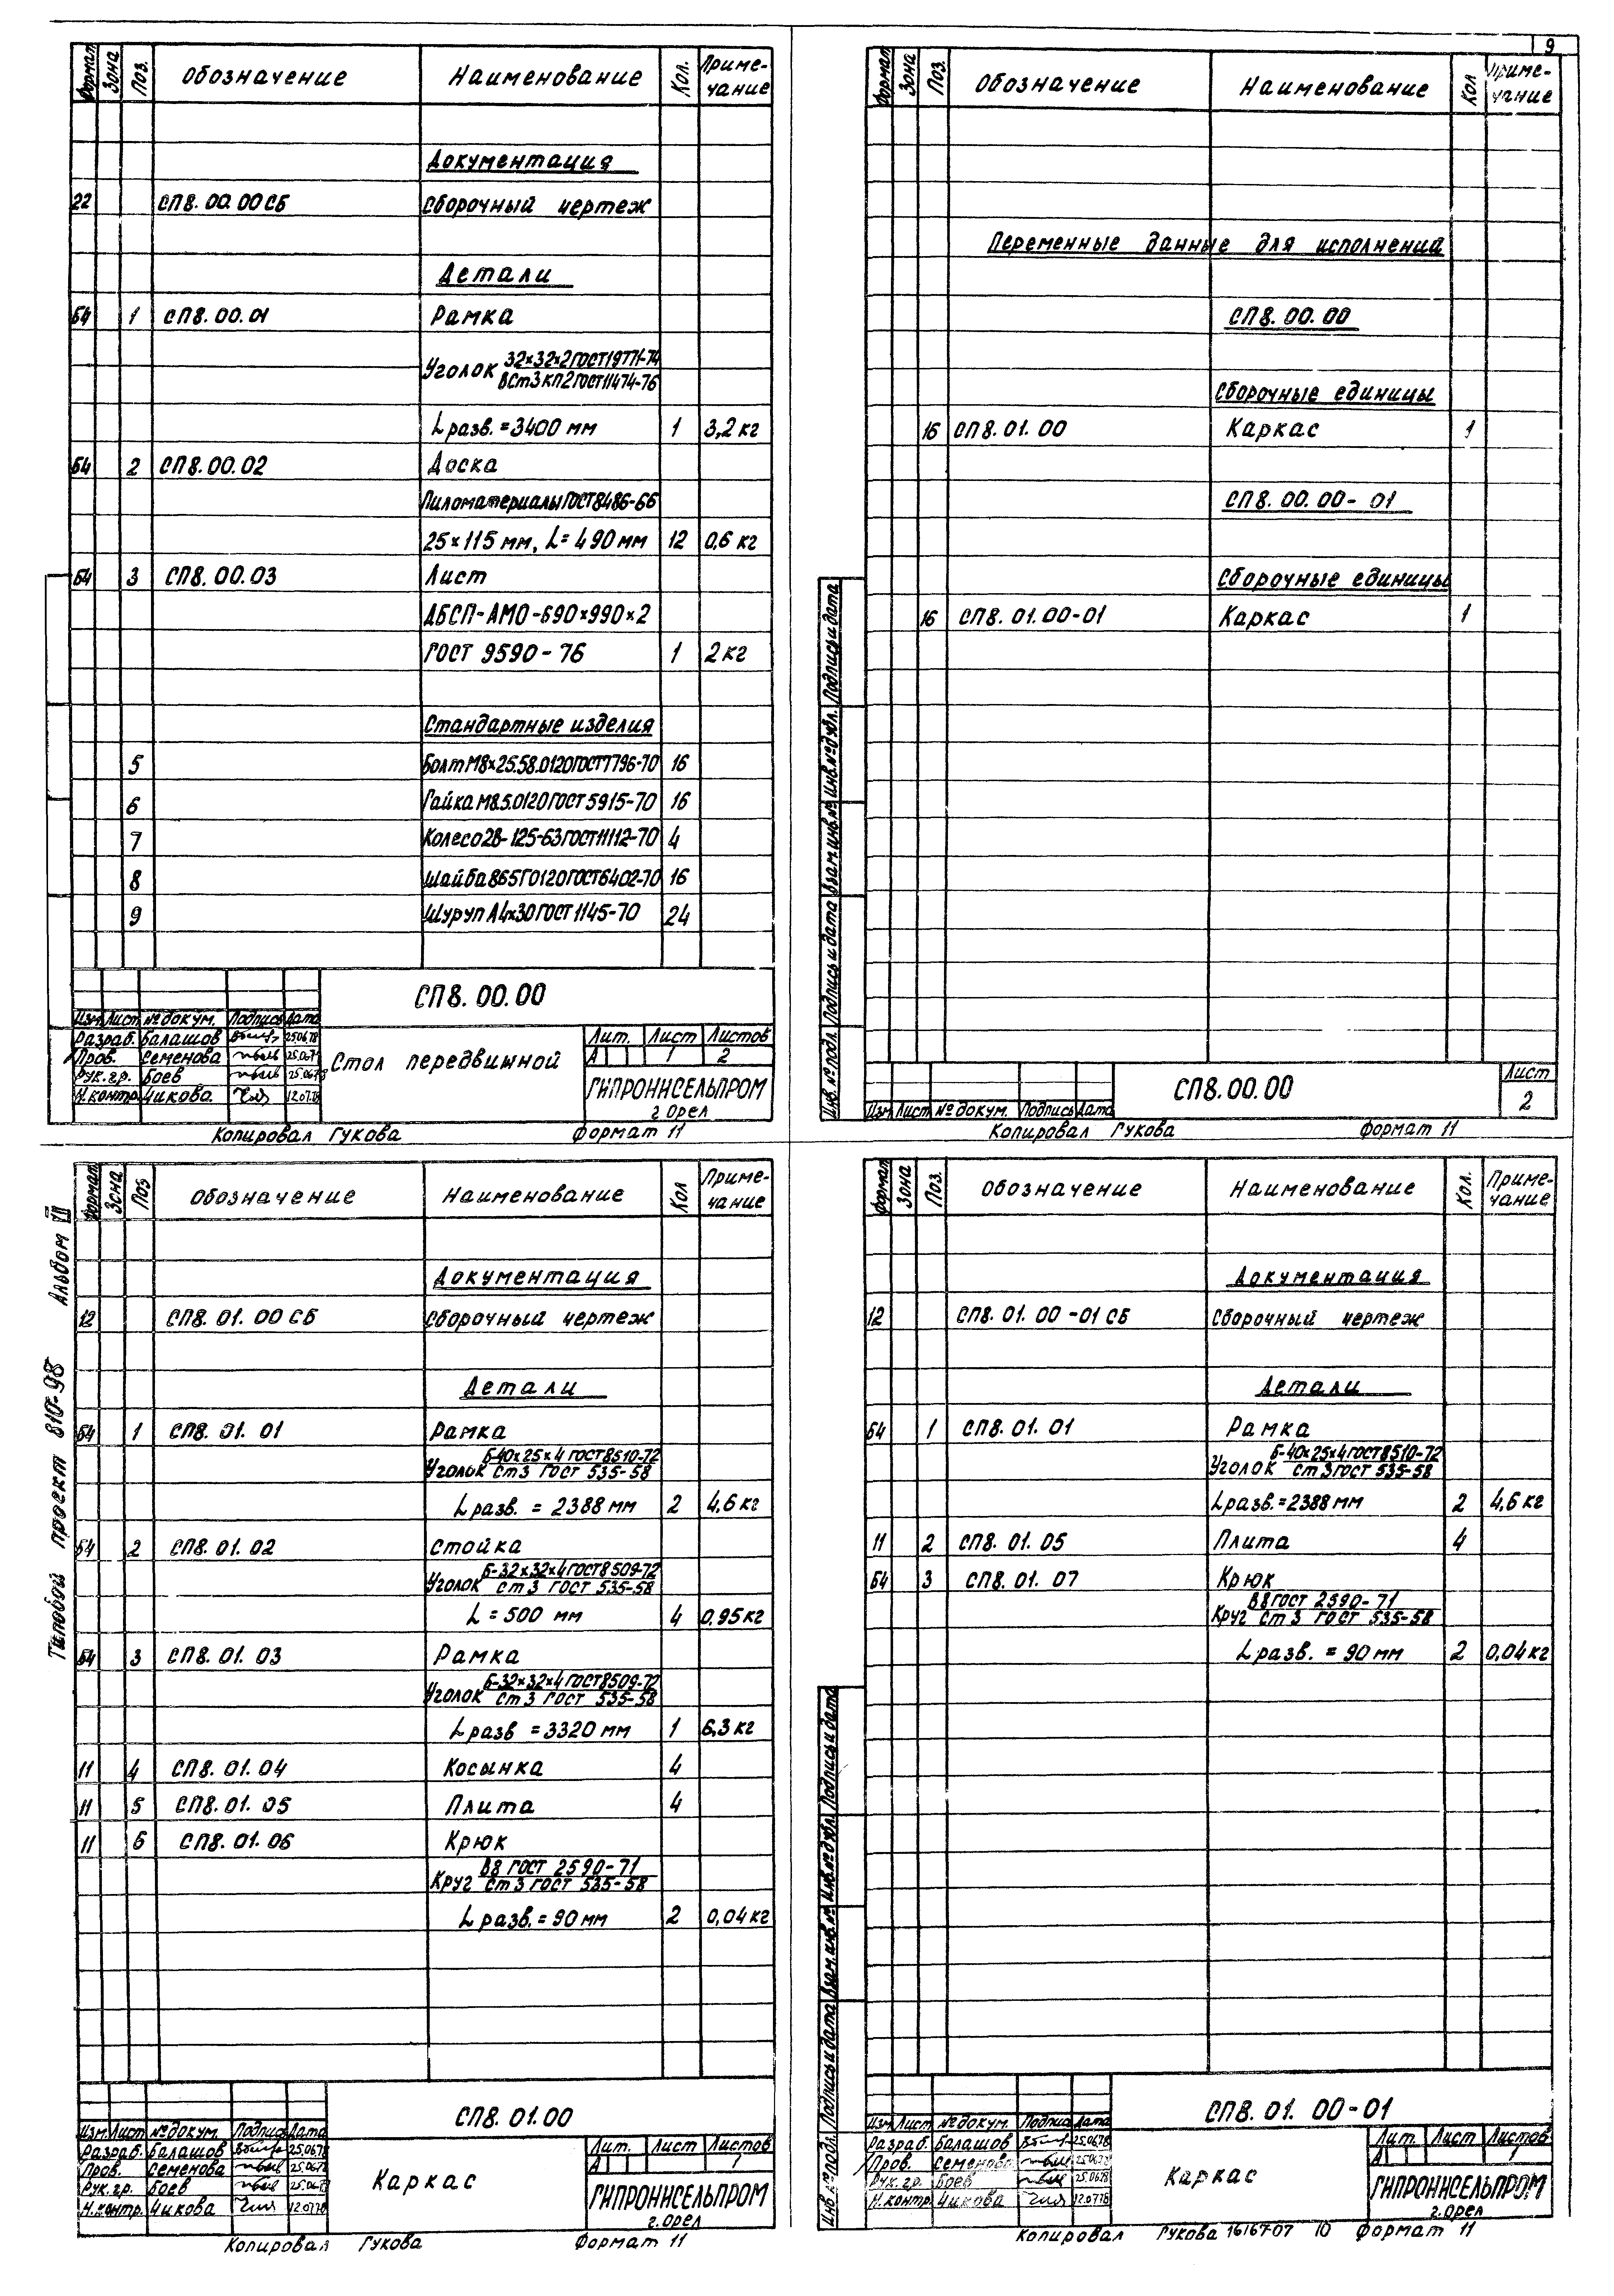 9
Формат Зона Поз. Обозначение Наименование Кол. Приме-
чание
Документация
22 СП8.00.00СБ Сборочный чертеж
Детали
Б4 1 СП8.00.01 Рамка
Уголок 32×32×2 ГОСТ 19771-74
ВСт3КП2 ГОСТ 11474-76
L разв. = 3400 мм 1 3,2 кг
Б4 2 СП8.00.02 Доска
Пиломатериалы ГОСТ 8486-66
25×115 мм, L=490 мм 12 0,6 кг
Б4 3 СП8.00.03 Лист
ДБСП-АМО-690×990×2
ГОСТ 9590-76 1 2 кг
Стандартные изделия
5 Болт М8×25.58.0120 ГОСТ 7796-70 16
6 Гайка М8.5.0120 ГОСТ 5915-70 16
7 Колесо 2В-125-63 ГОСТ 11112-70 4
8 Шайба 8 65Г 0120 ГОСТ 6402-70 16
9 Шуруп А4×30 ГОСТ 1145-70 24
СП8.00.00
Изм. Лист № докум. Подпись Дата
Разраб. Балашов 25.06.78
Пров. Семенова 25.06.78
Рук. гр. Боев 25.06.78
Н.контр. Чикова 12.07.78
Стол передвижной
Лит. Лист Листов
А 1 2
ГИПРОНИСЕЛЬПРОМ
г. Орел
Копировал Гукова Формат 11
Формат Зона Поз. Обозначение Наименование Кол Приме-
чание
Переменные данные для исполнения
СП8.00.00
Сборочные единицы
16 СП8.01.00 Каркас 1
СП8.00.00-01
Сборочные единицы
16 СП8.01.00-01 Каркас 1
Инв. № подл. Подпись и дата Взам. инв. № Инв. № дубл. Подпись и дата
СП8.00.00
Лист
2
Изм Лист № докум. Подпись Дата
Копировал Гукова Формат 11
Типовой проект 810-98 Альбом VII
Формат Зона Поз Обозначение Наименование Кол Приме-
чание
Документация
12 СП8.01.00 СБ Сборочный чертеж
Детали
Б4 1 СП8.01.01 Рамка
Уголок Б-40×25×4 ГОСТ 8510-72
Ст3 ГОСТ 535-58
L разв. = 2388 мм 2 4,6 кг
Б4 2 СП8.01.02 Стойка
Уголок Б-32×32×4 ГОСТ 8509-72
Ст3 ГОСТ 535-58
L = 500 мм 4 0,95 кг
Б4 3 СП8.01.03 Рамка
Уголок Б-32×32×4 ГОСТ 8509-72
Ст3 ГОСТ 535-58
L разв = 3320 мм 1 6,3 кг
11 4 СП8.01.04 Косынка 4
11 5 СП8.01.05 Плита 4
11 6 СП8.01.06 Крюк
Круг В8 ГОСТ 2590-71
Ст3 ГОСТ 535-58
L разв. = 90 мм 2 0,04 кг
СП8.01.00
Изм. Лист № докум. Подпись Дата
Разраб. Балашов 25.06.78
Пров. Семенова 25.06.78
Рук. гр. Боев 25.06.78
Н.контр. Чикова 12.07.78
Каркас
Лит. Лист Листов
А 1
ГИПРОНИСЕЛЬПРОМ
г. Орел
Копировал Гукова Формат 11
Формат Зона Поз. Обозначение Наименование Кол. Приме-
чание
Документация
12 СП8.01.00-01 СБ Сборочный чертеж
Детали
Б4 1 СП8.01.01 Рамка
Уголок Б-40×25×4 ГОСТ 8510-72
Ст3 ГОСТ 535-58
L разв. = 2388 мм 2 4,6 кг
11 2 СП8.01.05 Плита 4
Б4 3 СП8.01.07 Крюк
Круг В8 ГОСТ 2590-71
Ст3 ГОСТ 535-58
L разв. = 90 мм 2 0,04 кг
Инв. № подл. Подпись и дата Взам. инв. № Инв. № дубл. Подпись и дата
СП8.01.00-01
Изм. Лист № докум. Подпись Дата
Разраб. Балашов 25.06.78
Пров. Семенова 25.06.78
Рук. гр. Боев 25.06.78
Н.контр. Чикова 12.07.78
Каркас
Лит. Лист Листов
А 1
ГИПРОНИСЕЛЬПРОМ
г. Орел
Копировал Гукова 16167-07 10 Формат 11